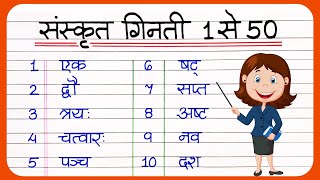 संस्कृत गिनती 1 से 50
1 एक 6 षट्
2 द्वौ 7 सप्त
3 त्रयः 8 अष्ट
4 चत्वारः 9 नव
5 पञ्च 10 दश